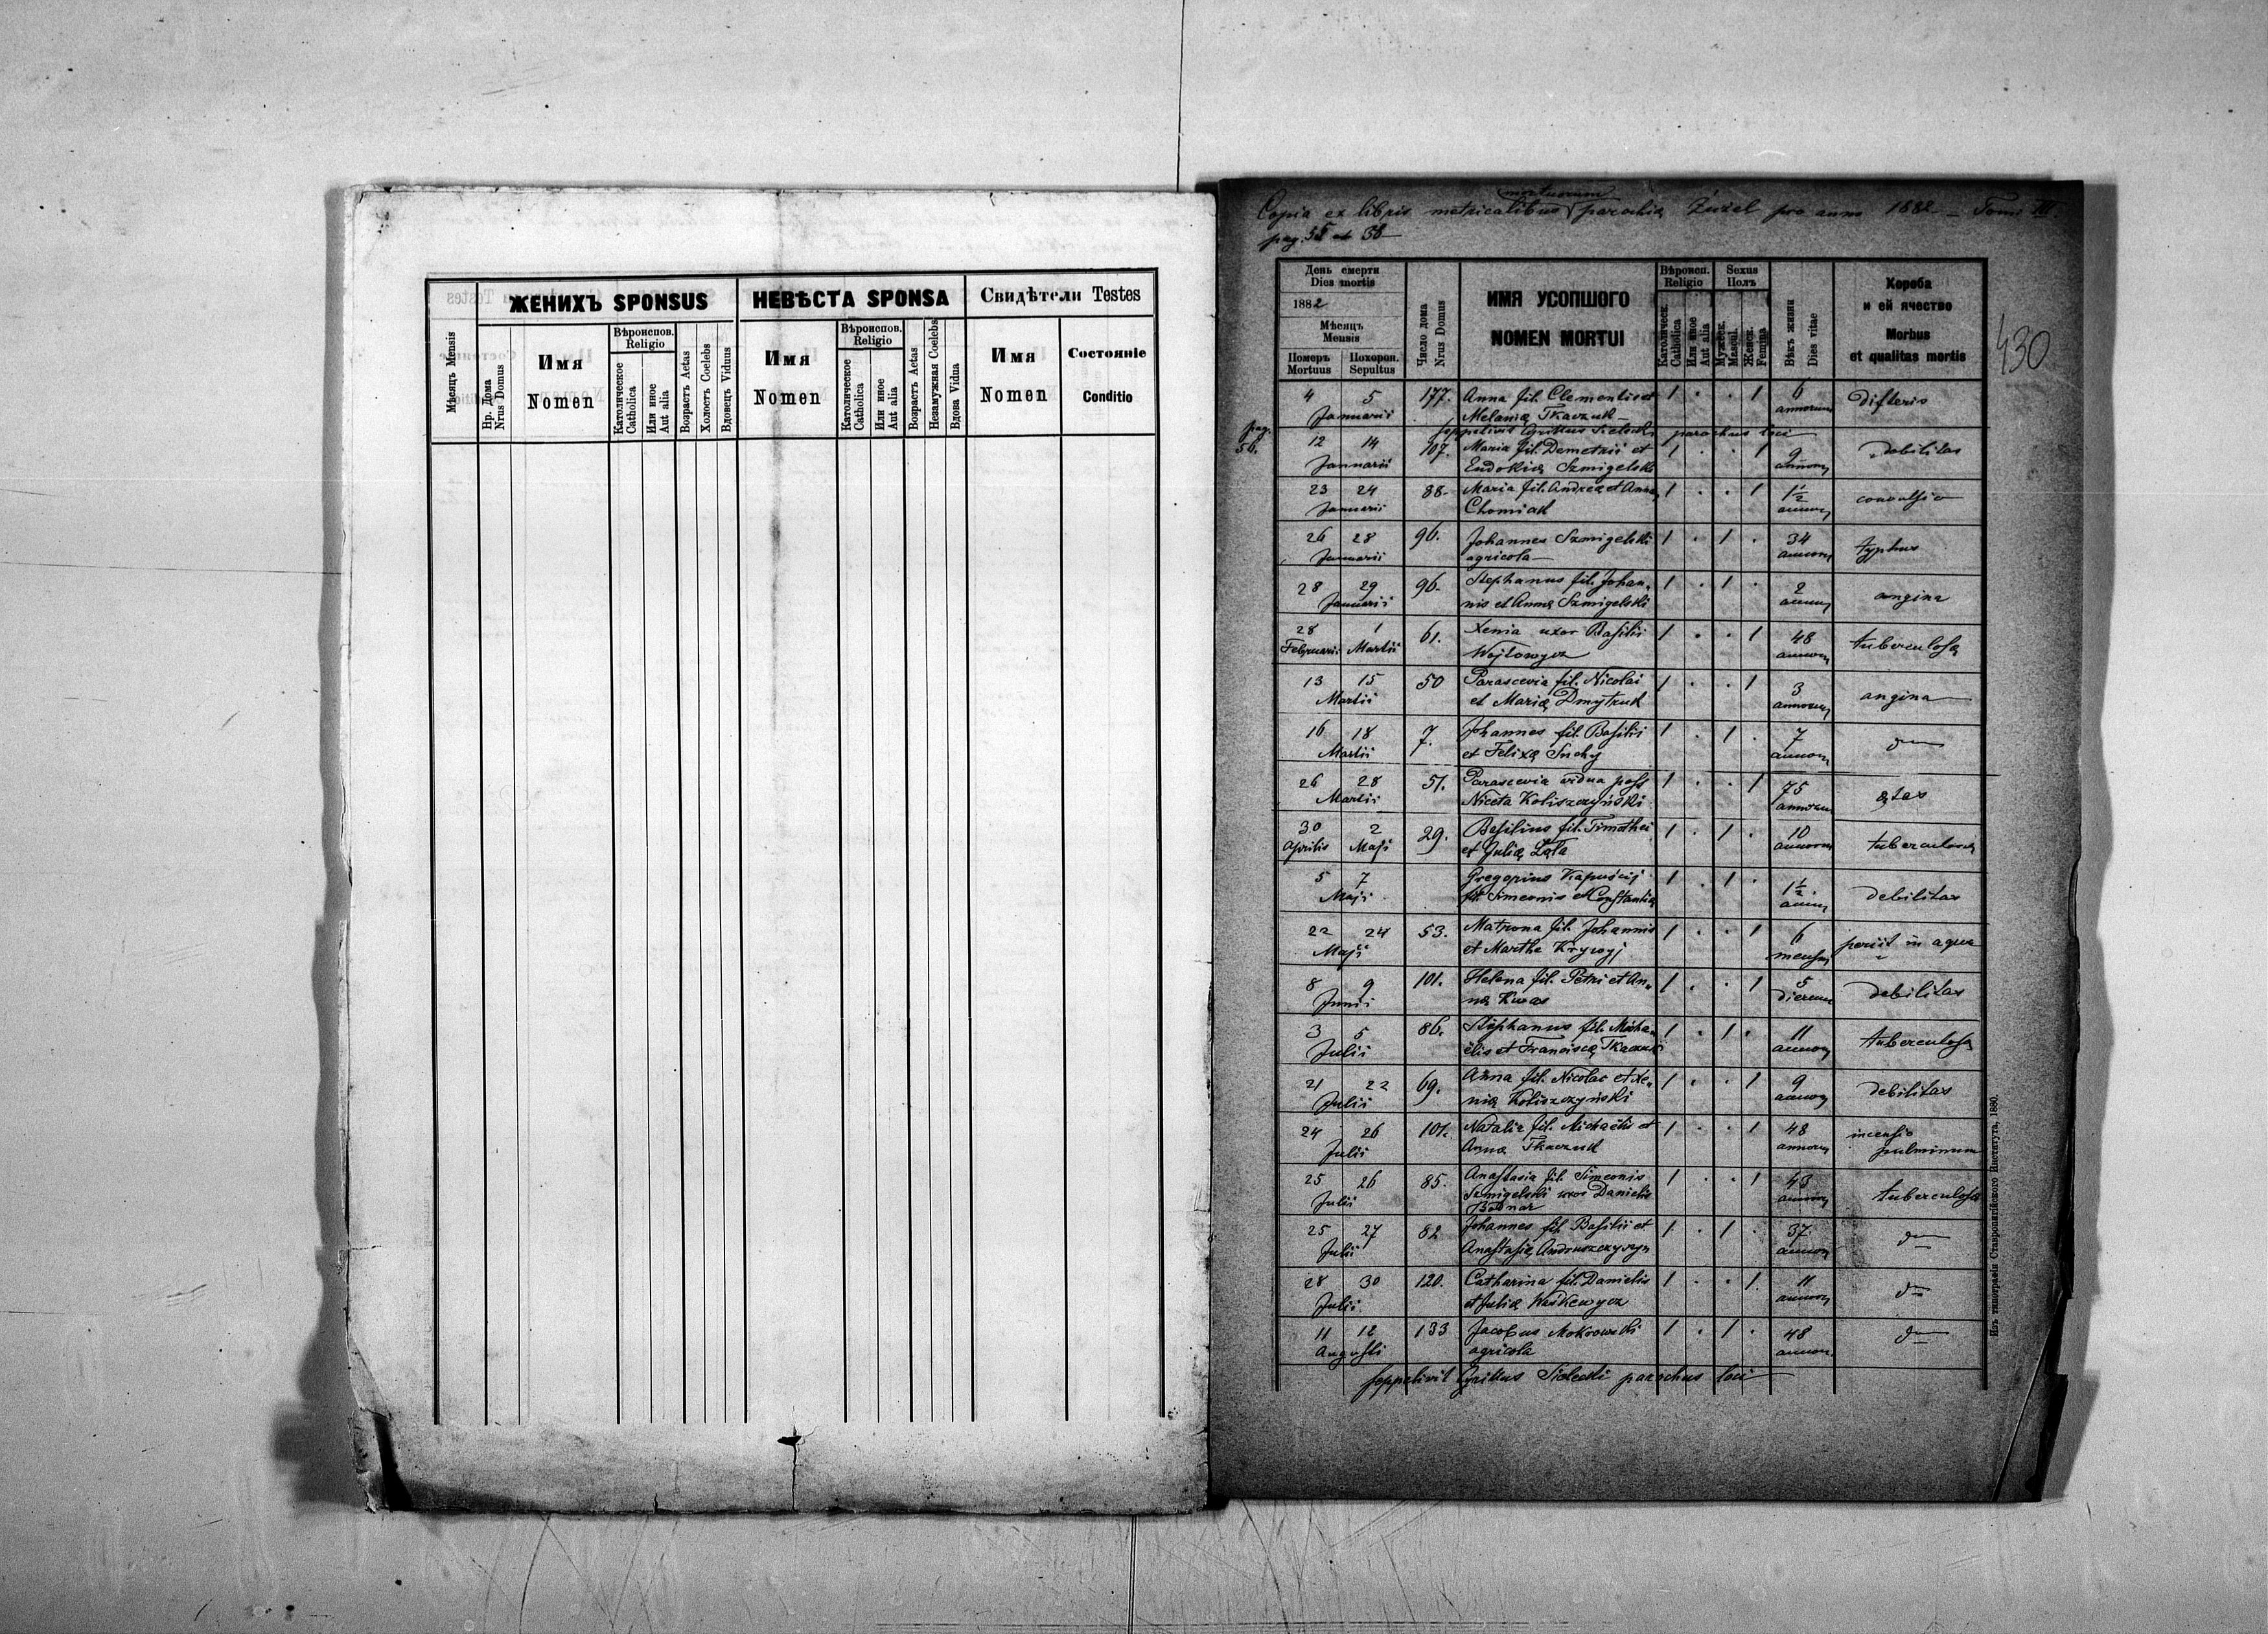 ЖЕНИХЪ SPONSUS
НЕВѢСТА SPONSA
Свидѣтели Testes
Мѣсяцъ Mensis
Нр. Дома
Nrus Domus
Имя
Nomen
Вѣроиспов.
Religio
Католическое
Catholica
Или иное
Aut alia
Возрастъ Aetas
Холостъ Coelebs
Вдовецъ Viduus
Имя
Nomen
Вѣроиспов.
Religio
Католическое
Catholica
Или иное
Aut alia
Возрастъ Aetas
Незамужная Coelebs
Вдова Vidua
Имя
Nomen
Состояніе
Conditio
mortuorum
Copia ex libris metricalibus parochiæ Żużel pro anno 1882 — Tom III.
pag. 55 et 56
430
День смерти
Dies mortis
1882
Мѣсяцъ
Mensis
Померъ
Mortuus
Похорон.
Sepultus
Число дома
Nrus Domus
ИМЯ УСОПШОГО
NOMEN MORTUI
Вѣроисп.
Religio
Католическ.
Catholica
Или иное
Aut alia
Sexus
Полъ
Мужеск.
Mascul.
Женск.
Femina
Вѣкъ жизни
Dies vitae
Хороба
и ей ячество
Morbus
et qualitas mortis
4 5 177. Anna fil. Clementis et 1 . . 1 6 difteris
Januarii Melaniæ Tkaczuk annorum
seppelivit Cyrillus Sielecki parochus loci
pag.
56.
12 14 107. Maria fil. Demetrii et 1 . . 1 9 debilitas
Januarii Eudokiæ Szmigelski annor.
23 24 88. Maria fil. Andreæ et Annæ 1 . . 1 1½ convulsio
Januarii Chomiak annor.
26 28 96. Johannes Szmigelski 1 . 1 . 34 typhus
Januarii agricola annor.
28 29 96. Stephanus fil. Johan- 1 . 1 . 2 angina
Januarii nis et Annæ Szmigelski annor.
28 1 61. Xenia uxor Basilii 1 . . 1 48 tuberculosa
Februarii Martii Wojtowycz annor.
13 15 50 Parascevia fil. Nicolai 1 . . 1 3 angina
Martii et Mariæ Dmytruk annorum
16 18 7. Johannes fil. Basilii 1 . 1 . 7 d—
Martii et Felixæ Suchy annor.
26 28 51. Parascevia vidua post 1 . . 1 75 ætas
Martii Niceta Koliszczyński annorum
30 2 29. Basilius fil. Timothei 1 . 1 . 10 tuberculosa
Aprilis Maji et Juliæ Łata annor.
5 7 Gregorius Kapuścij 1 . 1 . 1½ debilitas
Maji fil. Simeonis et Constantiæ annor.
22 24 53. Matrona fil. Johannis 1 . . 1 6 periit in aqua
Maji et Martha Krywyj mensium
8 9 101. Helena fil. Petri et An- 1 . . 1 5 debilitas
Junii næ dierum
3 5 86. Stephanus fil. Micha- 1 . 1 . 11 tuberculosa
Julii ëlis et Franciscæ Tkaczuk annor.
21 22 69. Anna fil. Nicolai et Xe- 1 . . 1 9 debilitas
Julii niæ Koliszczyński annor.
24 26 101. Natalia fil. Michaëlis et 1 . . 1 48 incensio
Julii Annæ Tkaczuk annor. pulminum
25 26 85. Anastasia fil. Simeonis 1 . . 1 43 tuberculosa
Julii Szmigelski uxor Danielis annor.
Bodnar
25 27 82 Johannes fil. Basilii et 1 . 1 . 37 d—
Julii Anastasiæ Andruszczyszyn annor.
28 30 120. Catharina fil. Danielis 1 . . 1 11 d—
Julii et Juliæ Waśkewycz annor.
11 12 133 Jacobus Mokrowski 1 . 1 . 48 d—
Augusti agricola annor.
seppelivit Cyrillus Sielecki parochus loci
Изъ типографіи Ставропигійского Института, 1880.